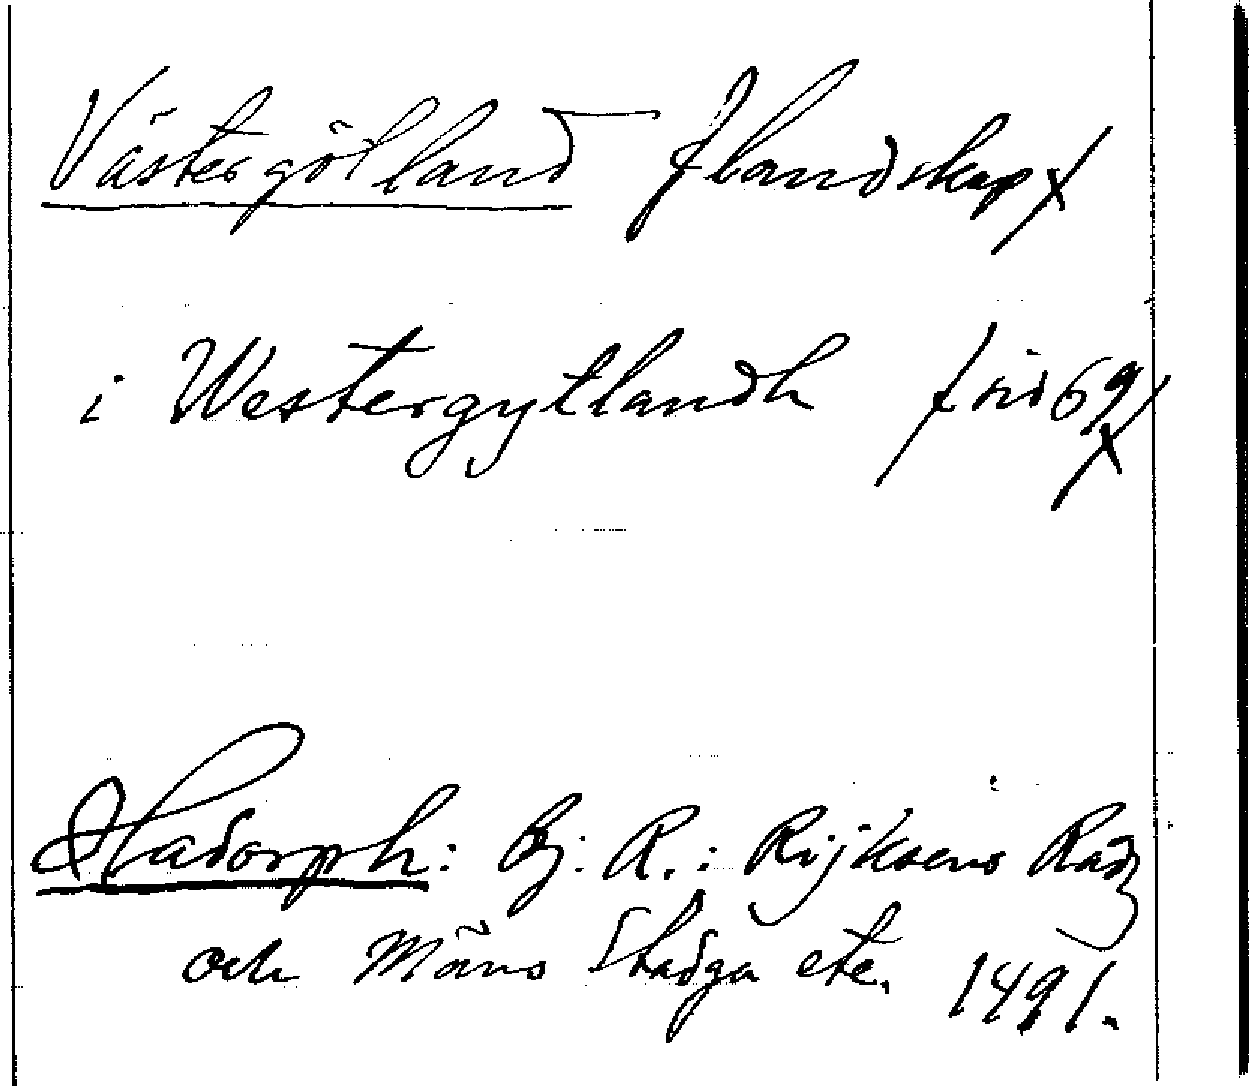 Västergötland /landskap/
i Westergytlandh /sid 69/
Hadorph: Bj. R.: Rijksens Radz
och Mäns Stadga etc. 1491.